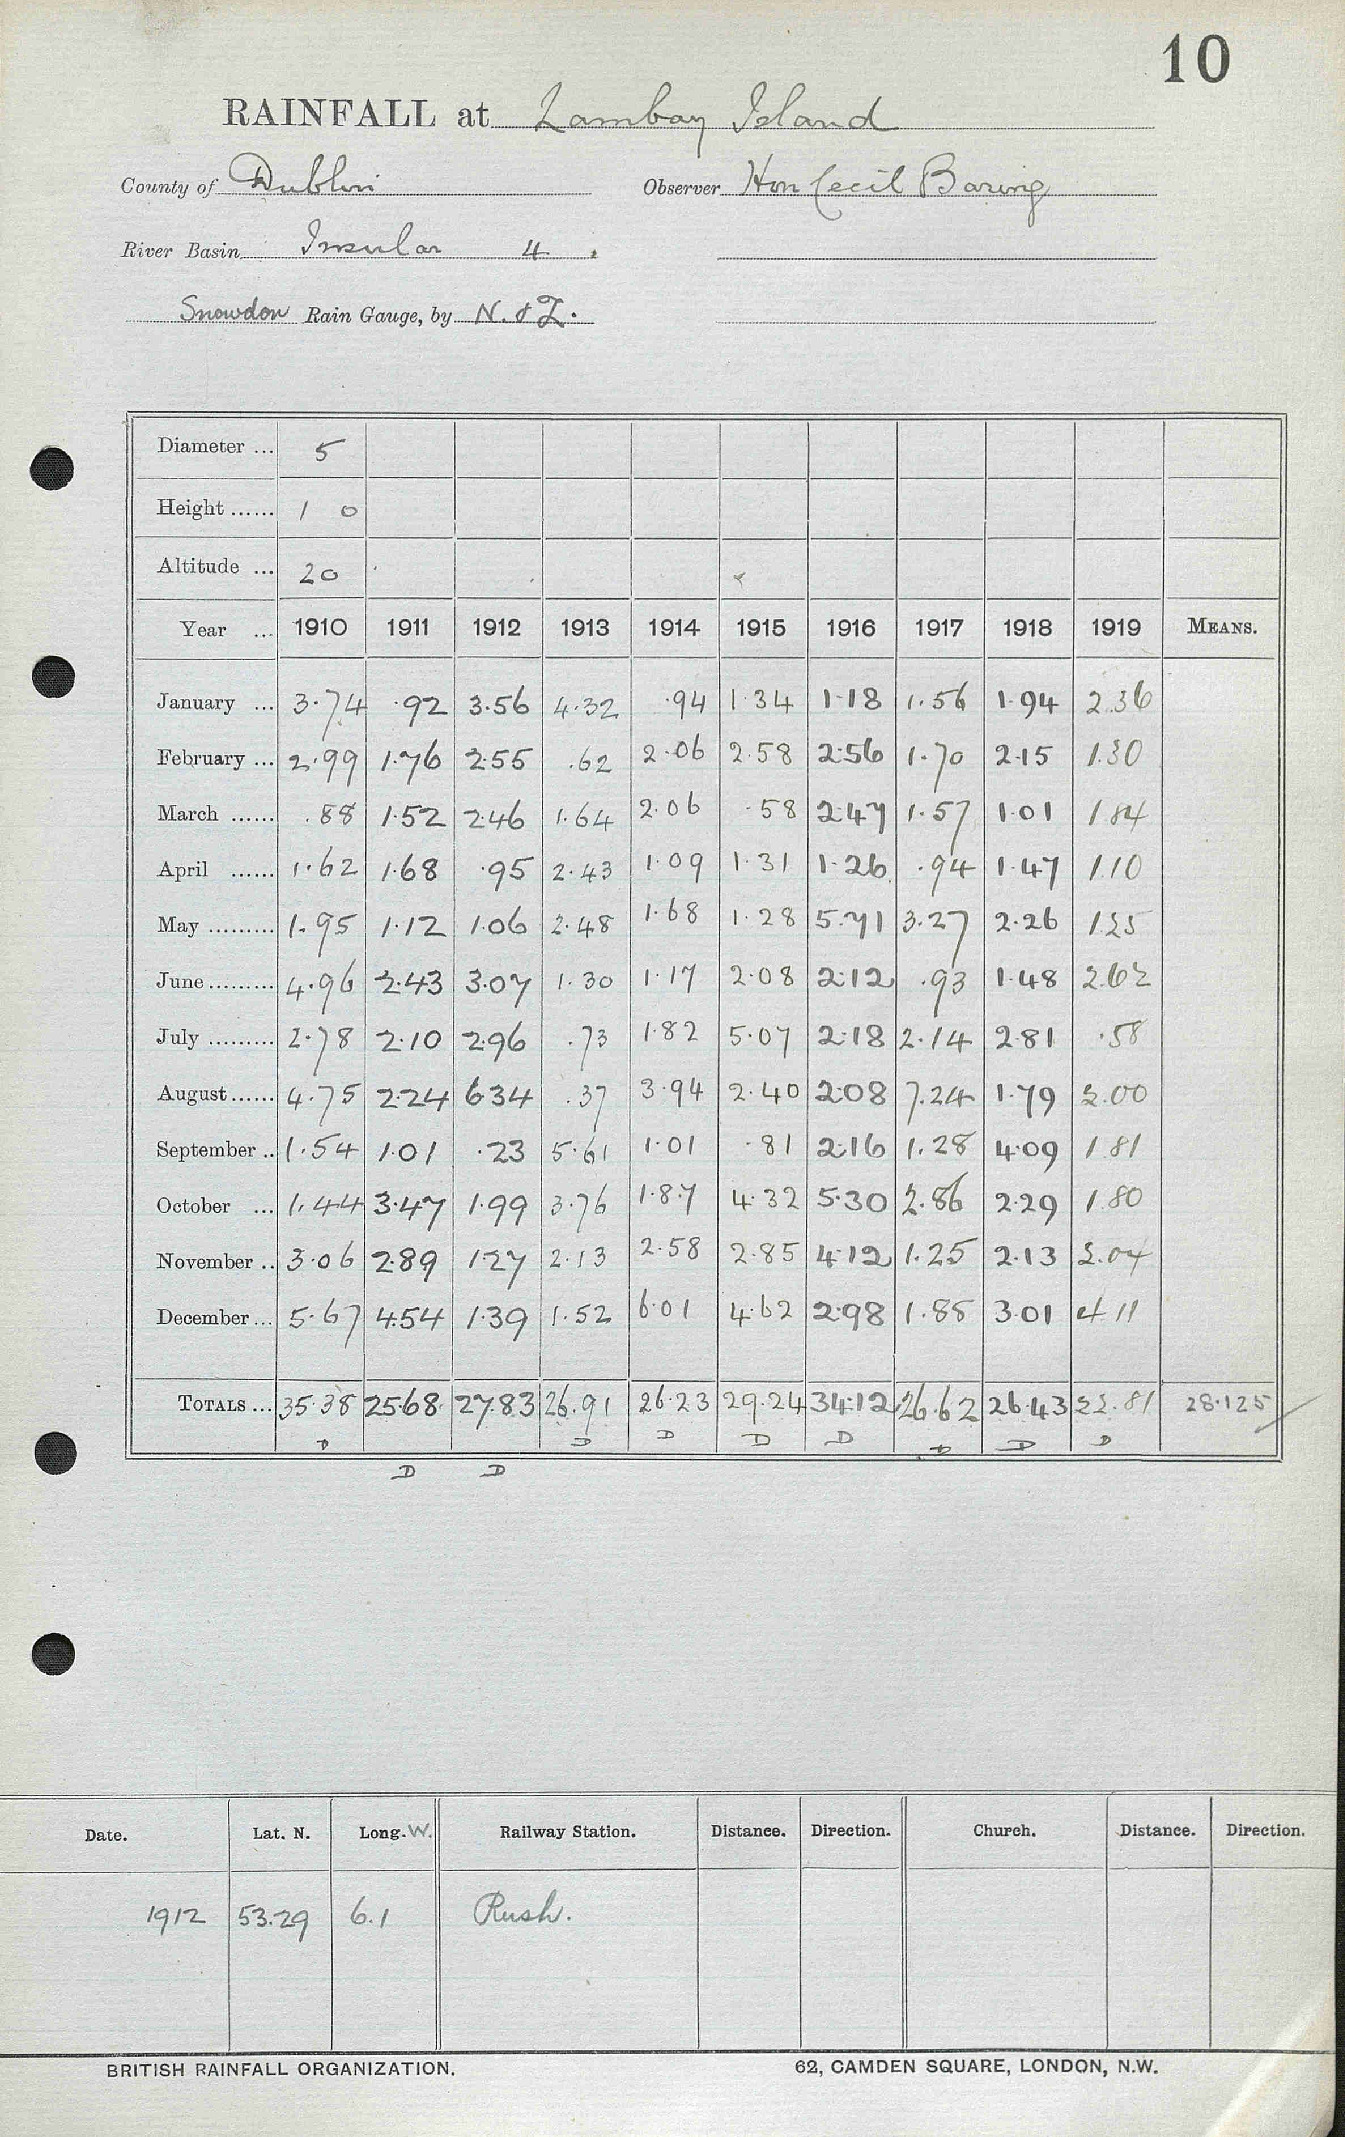 10
RAINFALL at Lambay Island
County of Dublin Observer Hon Cecil Baring
River Basin Insular 4.
Snowdon Rain Gauge, by N. & Z.
Diameter ... 5
Height ...... 1 0
Altitude ... 20
Year ... 1910 1911 1912 1913 1914 1915 1916 1917 1918 1919 MEANS.
January ... 3.74 .92 3.56 4.32 .94 1.34 1.18 1.56 1.94 2.36
February ... 2.99 1.76 2.55 .62 2.06 2.58 2.56 1.70 2.15 1.30
March ...... .88 1.52 2.46 1.64 2.06 .58 2.47 1.57 1.01 1.84
April ...... 1.62 1.68 .95 2.43 1.09 1.31 1.26 .94 1.47 1.10
May ......... 1.95 1.12 1.06 2.48 1.68 1.28 5.71 3.27 2.26 1.25
June ......... 4.96 2.43 3.07 1.30 1.17 2.08 2.12 .93 1.48 2.62
July ......... 2.78 2.10 2.96 .73 1.82 5.07 2.18 2.14 2.81 .58
August ...... 4.75 2.24 6.34 .37 3.94 2.40 2.08 7.24 1.79 2.00
September .. 1.54 1.01 .23 5.61 1.01 .81 2.16 1.28 4.09 1.81
October ... 1.44 3.47 1.99 3.76 1.87 4.32 5.30 2.86 2.29 1.80
November .. 3.06 2.89 1.27 2.13 2.58 2.85 4.12 1.25 2.13 2.04
December ... 5.67 4.54 1.39 1.52 6.01 4.62 2.98 1.88 3.01 4.11
TOTALS ... 35.38 25.68 27.83 26.91 26.23 29.24 34.12 26.62 26.43 22.81 28.125
D D D D D D D D
D D
Date. Lat. N. Long. W. Railway Station. Distance. Direction. Church. Distance. Direction.
1912 53.29 6.1 Rush.
BRITISH RAINFALL ORGANIZATION. 62, CAMDEN SQUARE, LONDON, N.W.